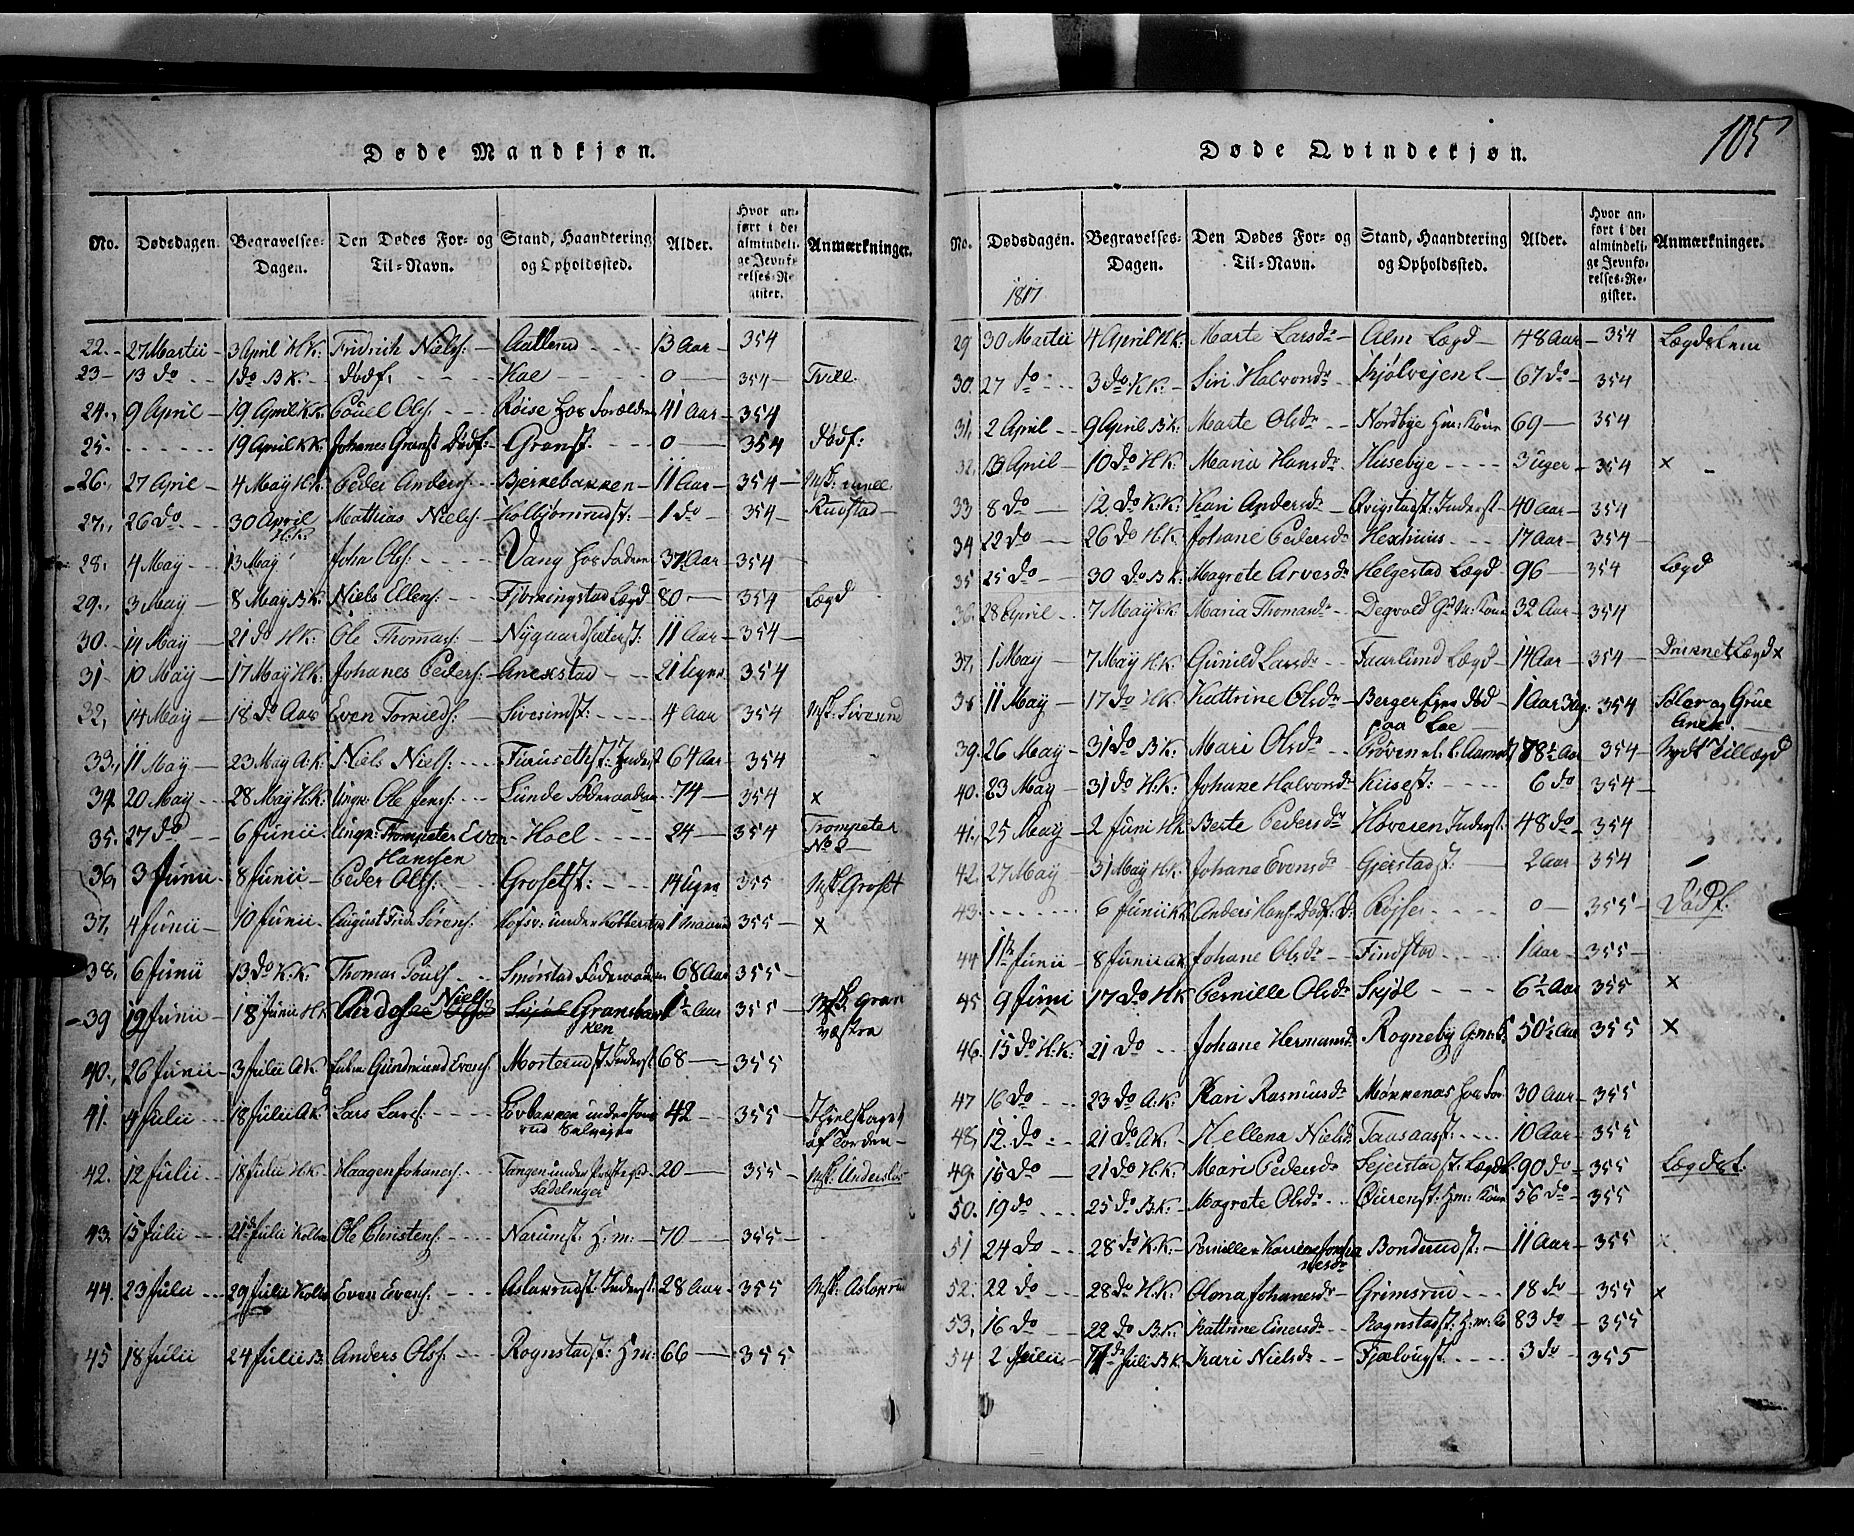 105
Døde Mandkjøn.
No. Dødsdagen. Begravelses-Dagen. Den Dødes For- og Til-Navn. Stand, Haandtering og Opholdssted. Alder. Hvor anført i det almindelige Jevnførelses-Register. Anmærkninger.
22. 27 Martii 3 April H.K: Fridrik Niels: Aallund 13 Aar 354
23 13 do 1 do B.K. Dødf. Hoe 0 354 Tvill.
24. 9 April 19 April K.K. Povel Ols: Røise hos Foræld: 41 Aar 354
25. 19 April K.K. Johanes Granst Dødf: Granst. 0 354 Dødf:
26. 27 April 4 May H.K. Peder Anders: Bjerkebakken 11 Aar 354
27. 26 do 30 April H.K. Mathias Niels: Kolbjørnsrudst: 1 do 354 Rudstad
28. 4 May 13 May John Ols: Vang hos Faderen 37 Aar 354
29. 3 May 8 May B.K: Niels Ellens: Fjørningstad Lægd 80 354 Lægd
30. 14 May 21 do H.K: Ole Thomas: Nygaardsæterst: 11 Aar 354
31 10 May 17 May H.K: Johanes Peders: Anexstad 21 Uger 354
32, 14 May 18 do Aas Even Tormods: Sivesindst: 4 Aar 354 Mst. Sivesind
33. 11 May 23 May A.K. Niels Niels: Furusethst: Inderst 64 Aar 354
34 20 May 28 May H.K. Ungk: Ole Jens: Lunde Føderaad 74 354 x
35. 27 do 6 Junii Ungk: Trompeter Even Hansen Hoel 24 354 Trompeter No 2
36, 3 Junii 8 Junii Peder Ols: Grosetst: 14 Uger 355 Mst Groset
37, 4 Junii 10 Junii August Fridr Sørens: 1 Maaned 355 x
38. 6 Junii 13 do K.K. Thomas Pouls Smørstad Føderaad 68 Aar 355
39 12 Junii 18 Junii H.K Niels: Gransbakken 1½ Aar 355 Mst Gran væstre
40. 26 Junii 3 Julii A.K. Gudmund Evens: Morterudst Inderst 68 355
41. 4 Julii 18 Julii A.K. Lars Lars: 42 355 Ihjelslaget af Torden
42. 12 Julii 18 Julii H.K. Haagen Johanes: Tangen under Sadelmager 20 355 Mst. Underslos
43. 15 Julii 21de Julii Kolbu Ole Christens: Narumst: Hm: 70 355
44. 23 Julii 29 Julii Kolbu Even Evens: Aslakrudst: Inderst: 28 Aar 355 Mst: Aslakrud
45 18 Julii 24 Julii B. Anders Ols: Rognstadst: Hm: 66 355
Døde Qvindekjøn.
No. Dødsdagen. Begravelses-Dagen. Den Dødes For- og Til-Navn. Stand, Haandtering og Opholdssted. Alder. Hvor anført i det almindelige Jevnførelses-Register. Anmærkninger.
1817
29 30 Martii 4 April H.K: Marte Larsdr Alm Lægd 48 Aar 354 Lægdslem
30. 27 do 3 do K.K: Siri Halvorsdr Skjølvejen 67 do 354
31, 2 April 9 April B.K: Marte Olsdr Nordbye Hm: Kone 69 354
32, 13 April 10 do H.K: Maria Hansdr Husebye 3 Uger 354 x
33 8 do 12 do K.K: Kari Andersdr Qvigstadst: Inderst 40 Aar 354
34 22 do 26 do H.K: Johane Pedersdr Hexhuus 17 Aar 354
35 25 do 30 do B.K: Magrete Arvesdr Helgestad Lægd 96 354 Lægd
36. 28 April 7 May K.K Maria Thomasdr Degvold Gdm: Kone 32 Aar 354
37, 1 May 7 May H.K: Gunild Larsdr Faarlund Lægd 14 Aar 354 Druknet Lægd x
38 11 May 17 do H.K: Kattrine Olsdr Berger Eyer død paa Loe 1 Aar 3 Ug 354 Solør og Grue Anex
39. 26 May 31 do B.K: Mari Olsdr 78½ Aar 354 Nydt Tillægd
40. 23 May 31 do H.K: Johane Halvorsdr Kusest: 6 do 354
41, 25 May 2 Juni H.K Berte Pedersdr Høveren Inderst: 48 do 354
42. 27 May 31 May H.K: Johane Evensdr Gjerstadst: 2 Aar 354
43. 6 Junii K.K Anders Hans: Dødf. D: Røjse 0 355 Dødf:
44 1te Junii 8 Junii A.K Johane Olsdr Findstad 1 Aar 355
45 9 Juni 17 do H.K Pernille Olsdr Skjøl 6½ Aar 355 x
46. 15 do H.K: 21 do Johane Hermansdr Rogneby 50½ Aar 355 x
47 16 do 23 do A.K. Kari Rasmusdr Møkkenas hos 30 Aar 355
48, 12. do 21 do A.K: Hellena Nielsdr Taasaasst: 10 Aar 355
49. 15 do 21 do H.K: Mari Pedersdr Sejerstadst: Lægd 90 do 355 Lægdst.
50. 19 do 25 do B.K. Magrete Olsdr Øurenst: Hm: Kone 56 do 355
51 24 do 28 do K.K: Pernille Karine Johanesdr Bonderudst: 11 Aar 355 x
52. 22 do 28 do H.K: Olena Johanesdr Grimsrud 18 do 355 x
53, 16 do 22 do B.K: Kattrine Einersdr Rognstadst: Hm: 83 do 355
54 2 Julii 7de Juli B.K: Kari Nielsdr Fjælvugst 3 do 355